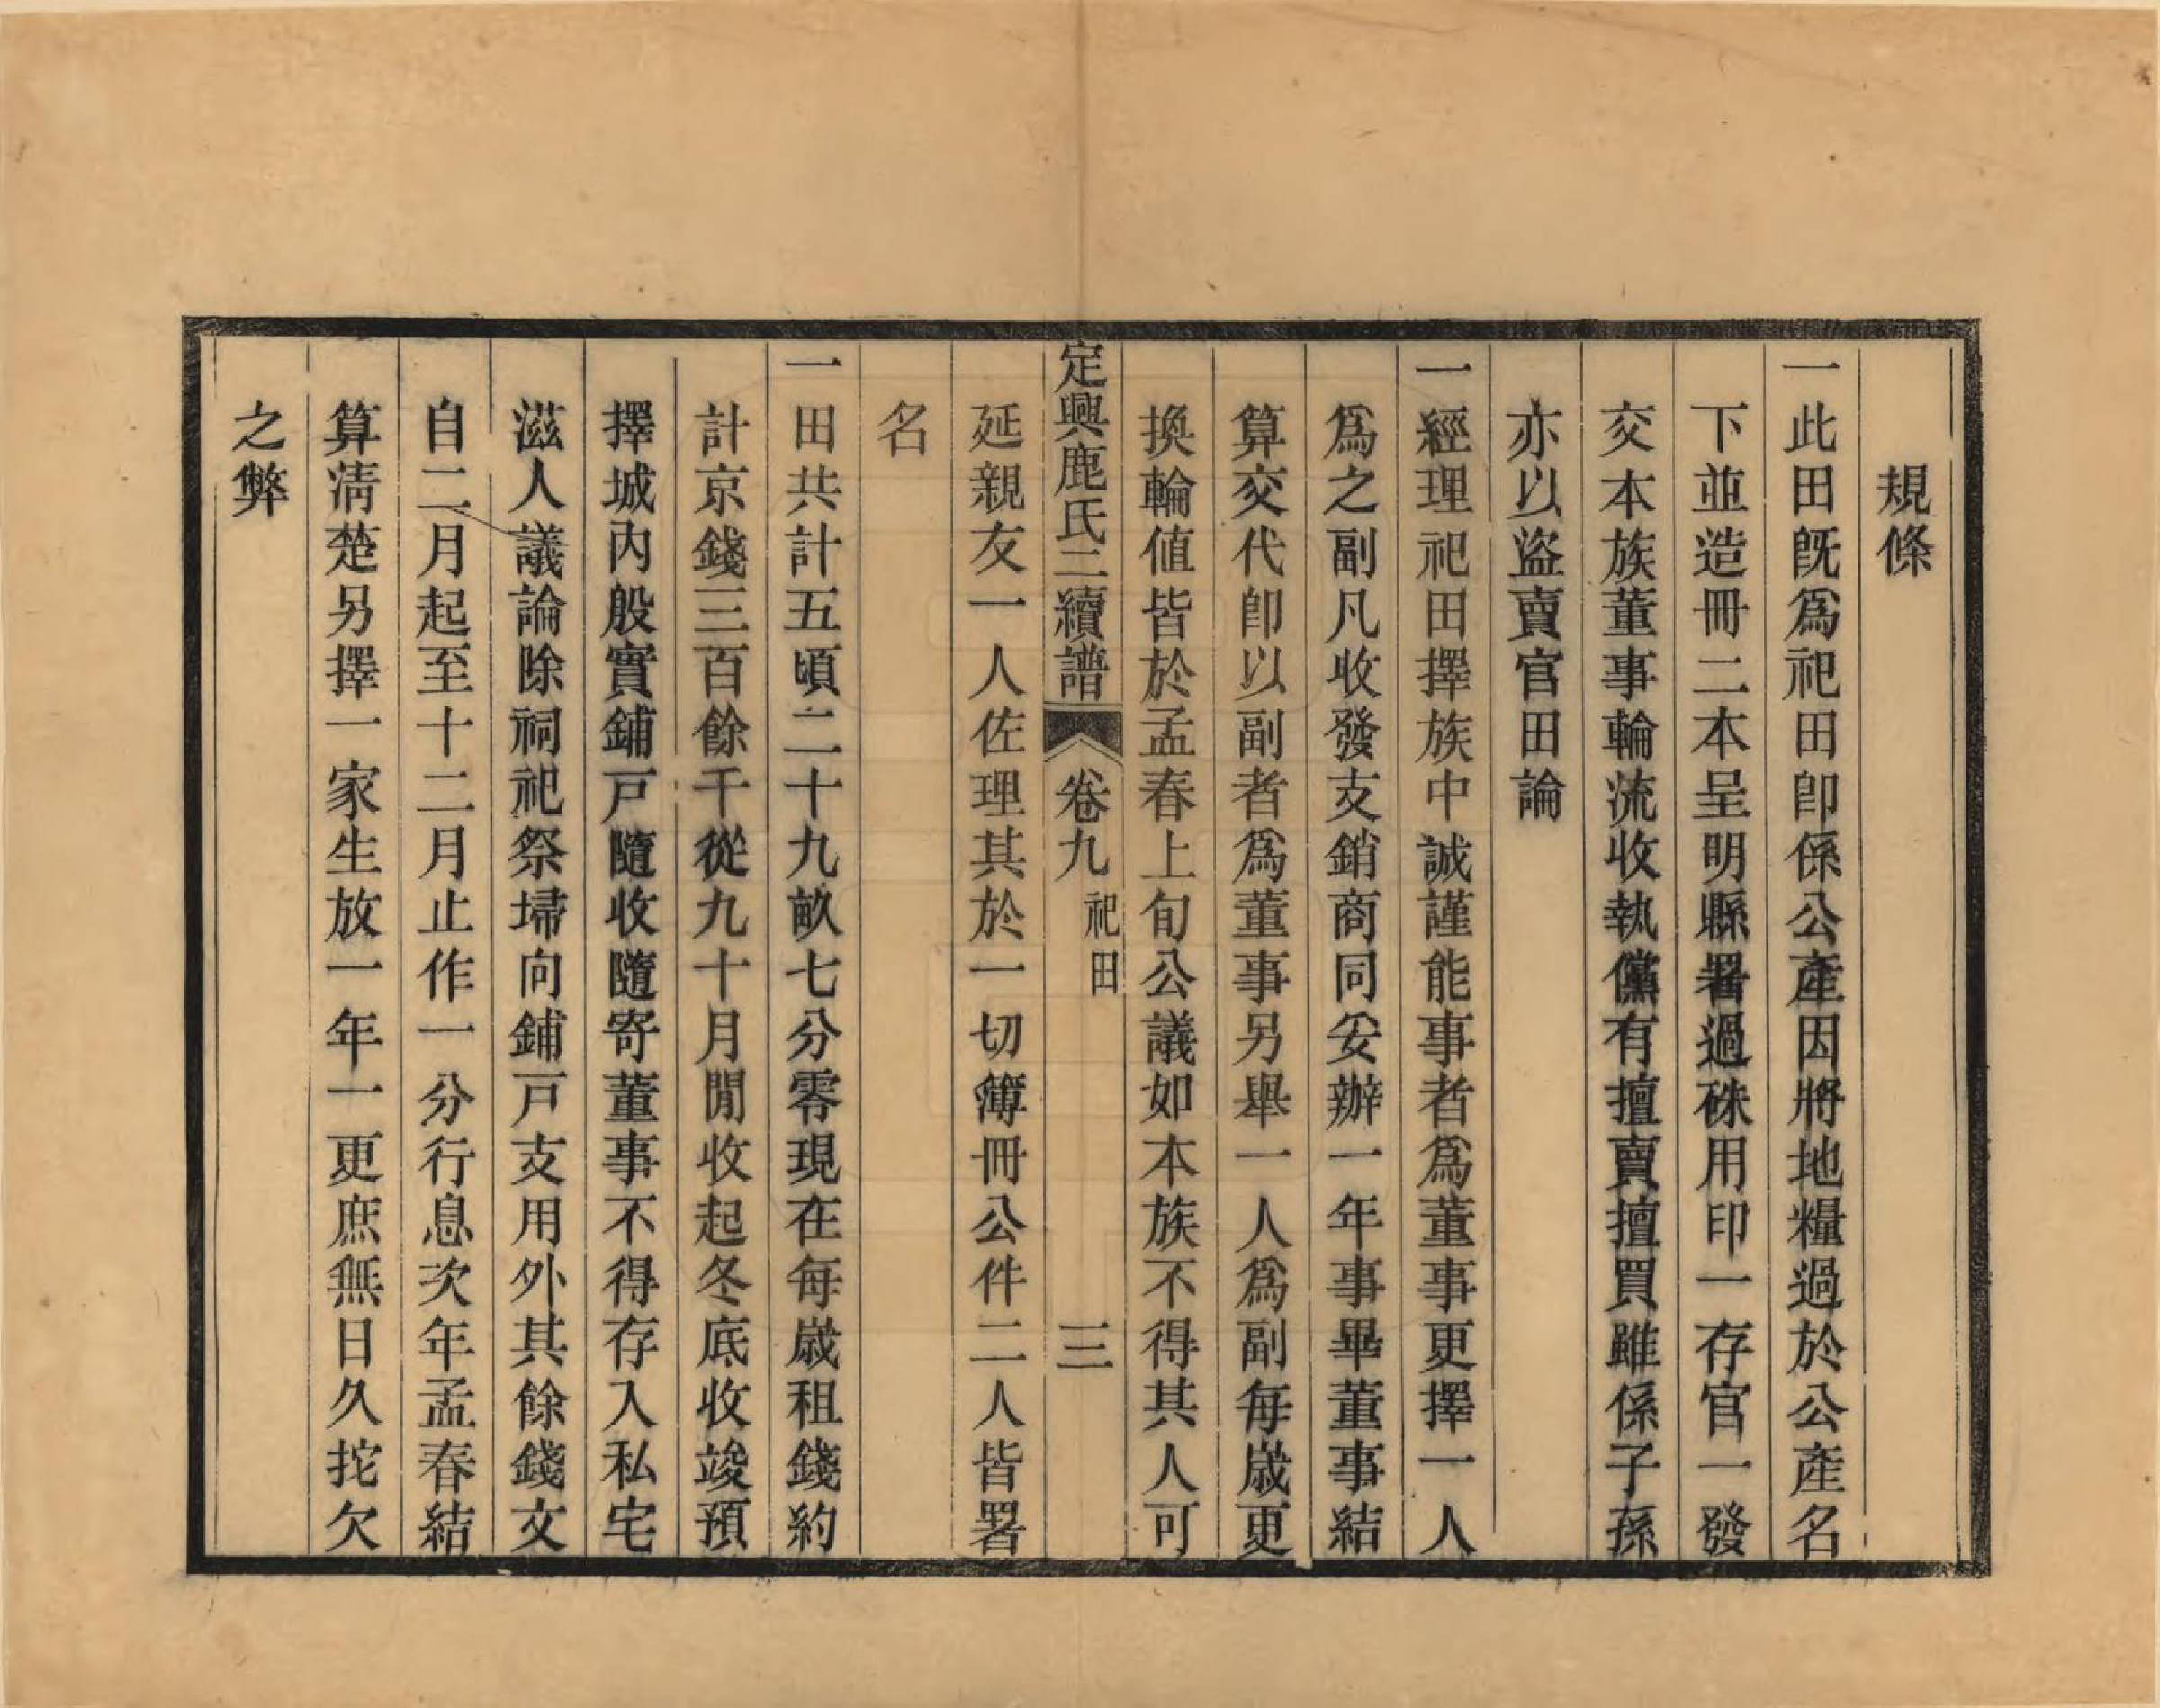 規條
一此田旣爲祀田卽係公產因將地糧過於公產名
下並造冊二本呈明縣署過硃用印一存官一發
交本族董事輪流收執儻有擅賣擅買雖係子孫
亦以盜賣官田論
一經理祀田擇族中誠謹能事者爲董事更擇一人
爲之副凡收發支銷商同妥辦一年事畢董事結
算交代卽以副者爲董事另舉一人爲副每歲更
換輪値皆於孟春上旬公議如本族不得其人可
定興鹿氏二續譜 卷九 祀田 三
延親友一人佐理其於一切簿冊公件二人皆署
名
一田共計五頃二十九畝七分零現在每歲租錢約
計京錢三百餘千從九十月閒收起冬底收竣預
擇城內殷實鋪戸隨收隨寄董事不得存入私宅
滋人議論除祠祀祭埽向鋪戸支用外其餘錢文
自二月起至十二月止作一分行息次年孟春結
算淸楚另擇一家生放一年一更庶無日久挖欠
之弊